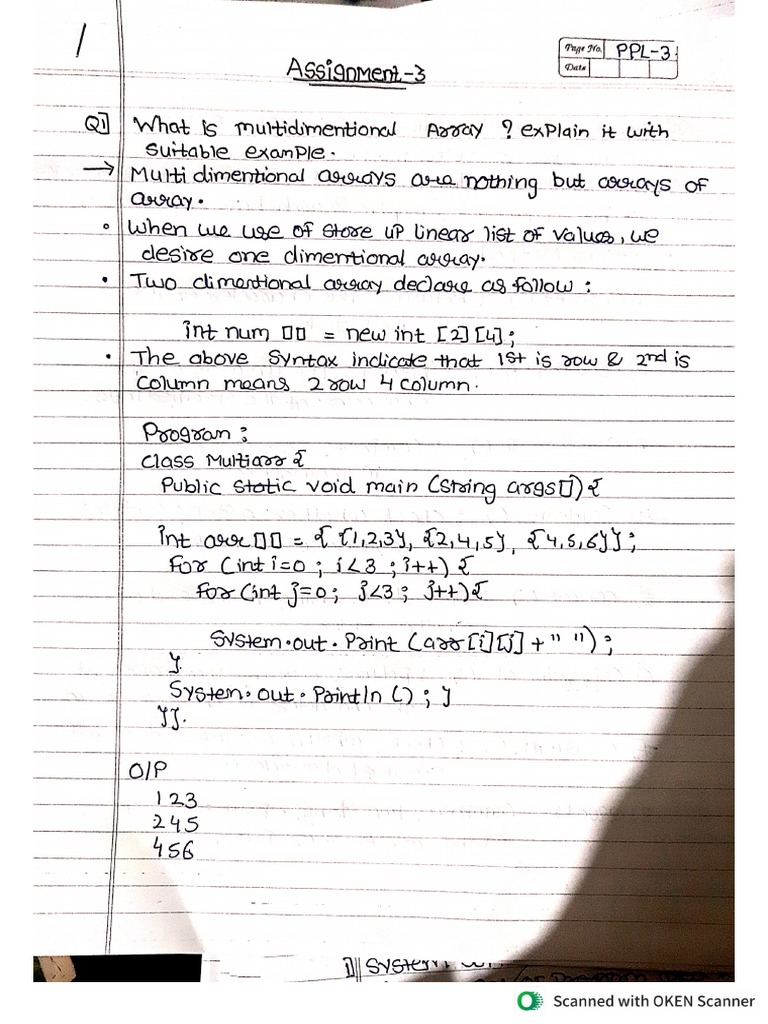 1
Page No. PPL-3
Date
Assignment-3
Q1] What is multidimentional Array ? explain it with
suitable example.
→ Multi dimentional arrays are nothing but arrays of
array.
• When we use of store up linear list of values, we
desire one dimentional array.
• Two dimentional array declare as follow :
int num [][] = new int [2][4];
• The above Syntax indicate that 1st is row & 2nd is
Column means 2 row 4 column.
Program :
Class Multiarr {
Public static void main (String args[]) {
int arr[][] = { {1,2,3}, {2,4,5}, {4,5,6}};
for (int i=0 ; i<3 ; i++) {
for (int j=0 ; j<3 ; j++) {
System.out.Print (arr[i][j] + " ");
}
System.out.Println () ; }
}}.
O/P
1 2 3
2 4 5
4 5 6
1] System
Scanned with OKEN Scanner